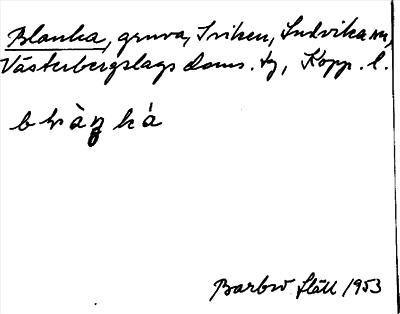 Blanka, gruva, Iviken, Ludvika sn,
Västerbergslags doms. tg, Kopp. l.
Barbro Släll 1953